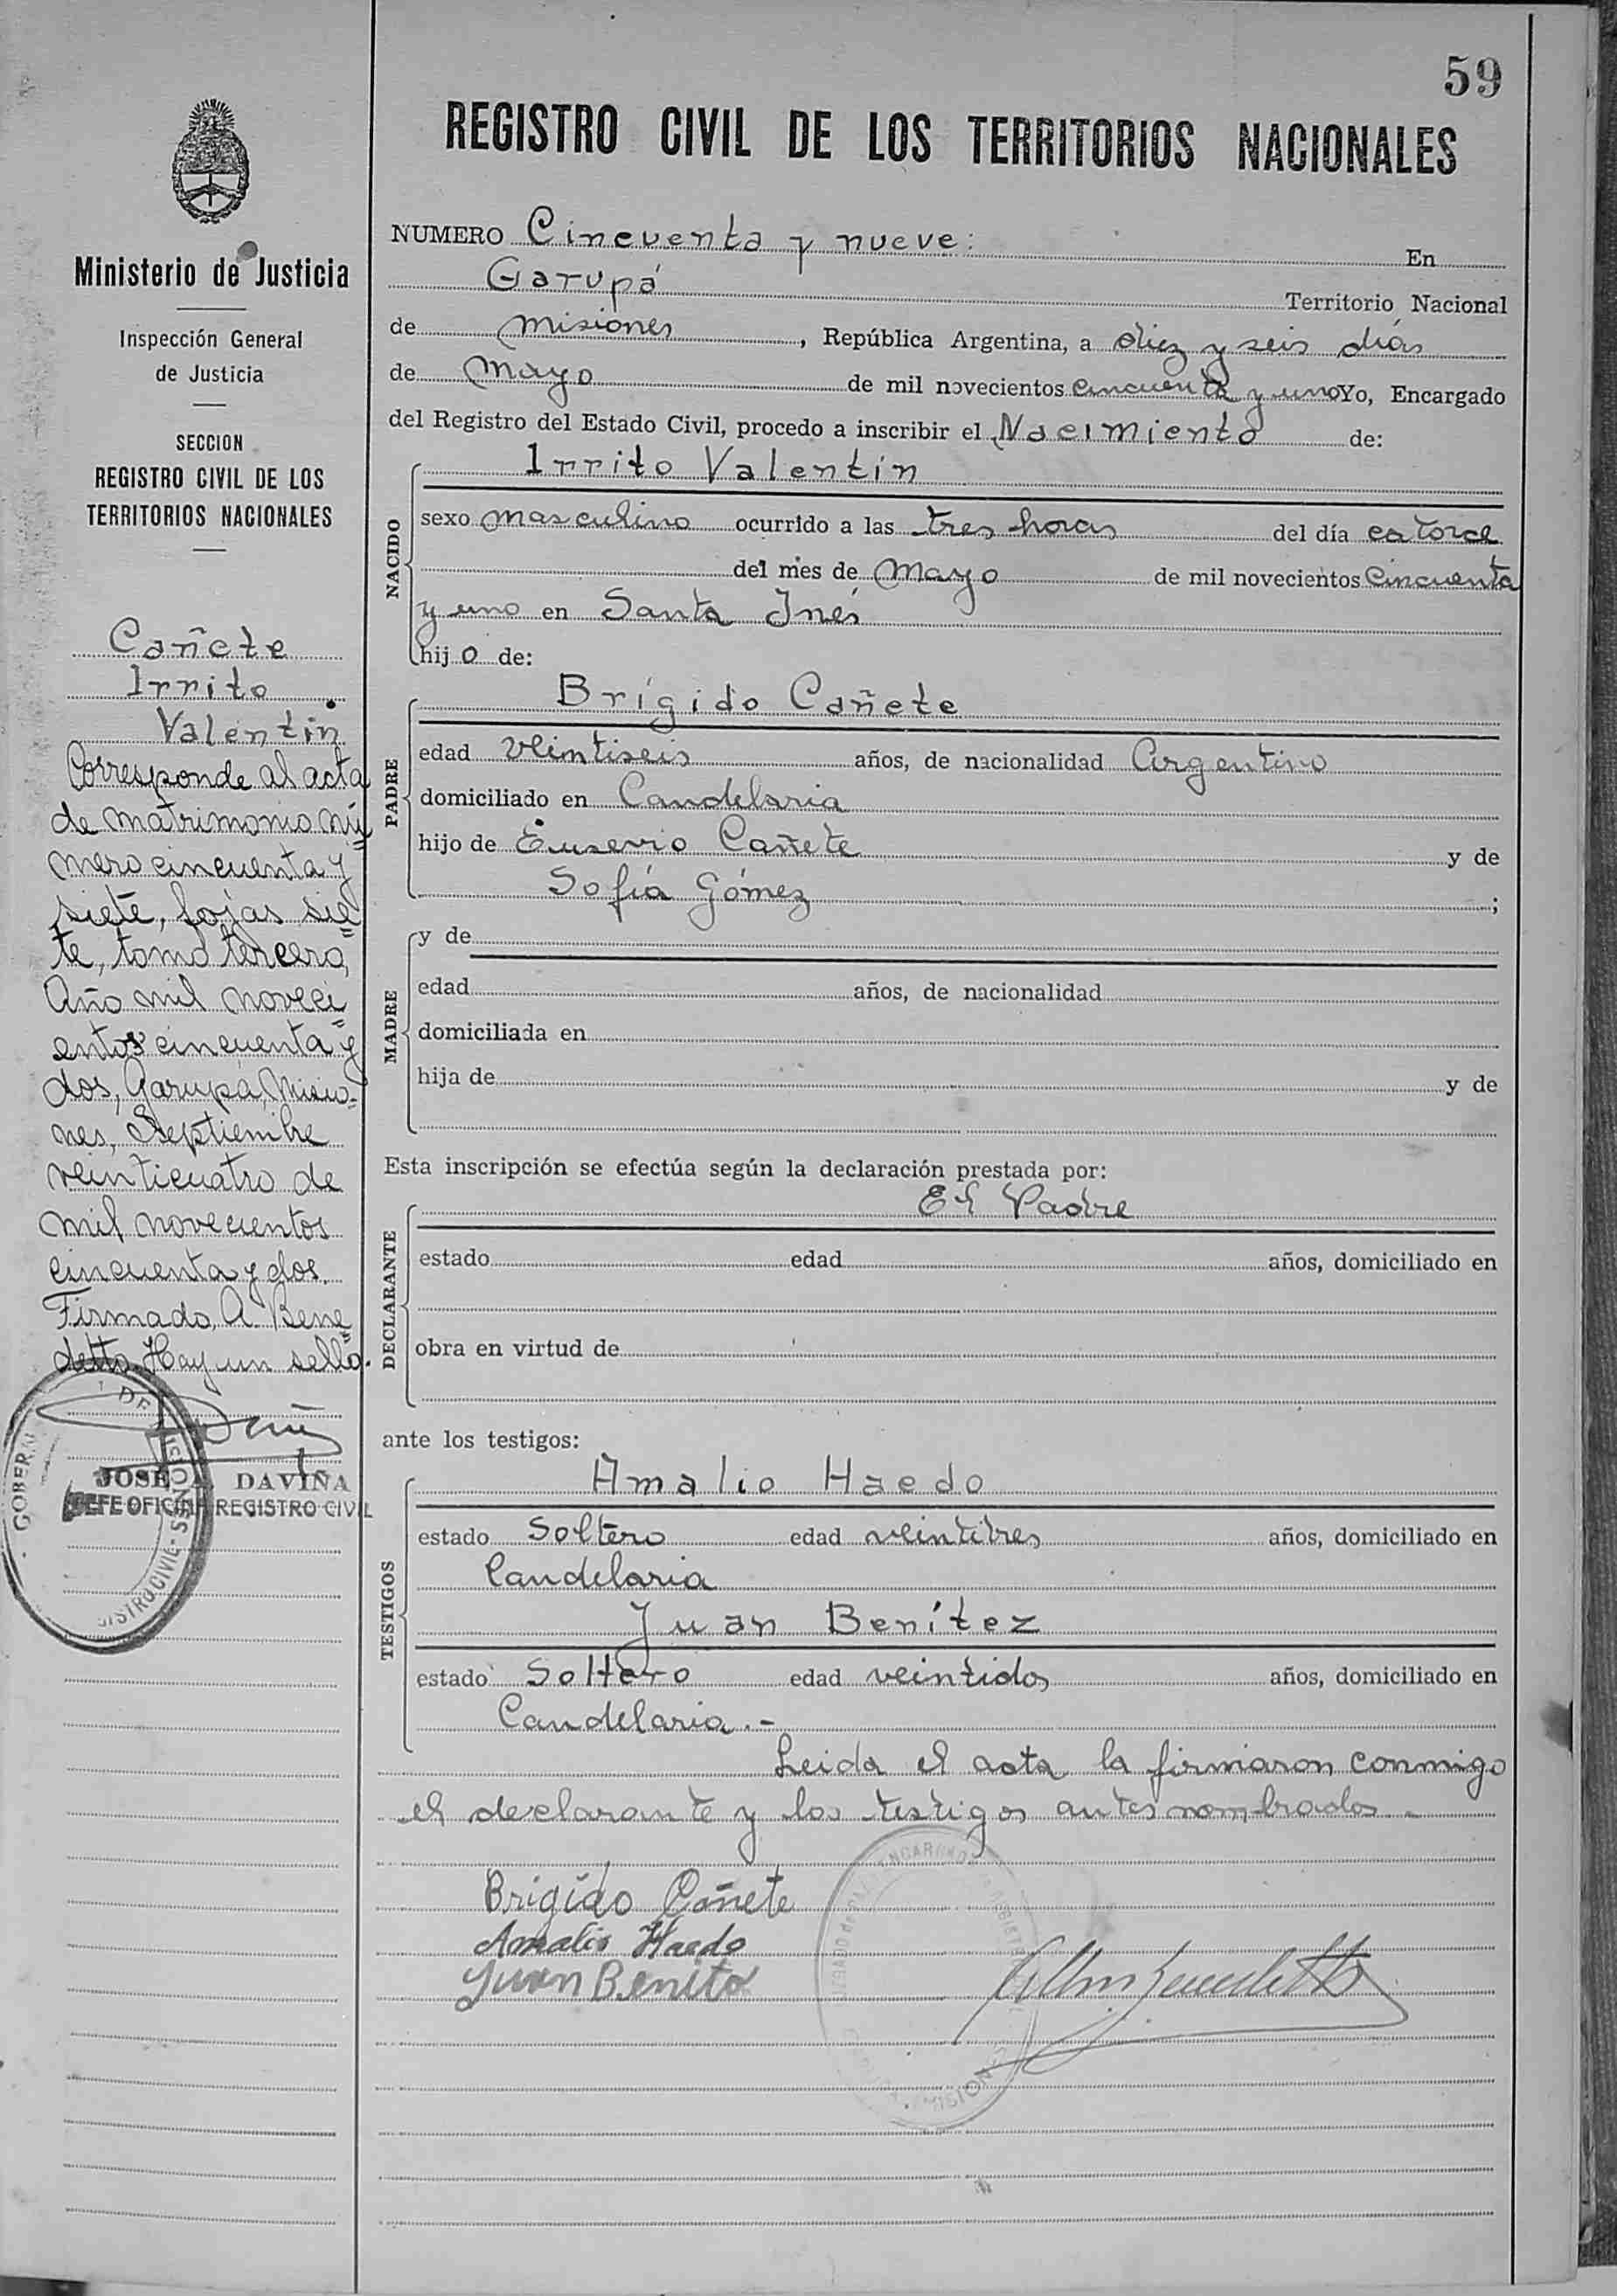 59
REGISTRO CIVIL DE LOS TERRITORIOS NACIONALES
Ministerio de Justicia
Inspección General
de Justicia
SECCION
REGISTRO CIVIL DE LOS
TERRITORIOS NACIONALES
Cañete
Irrito
Valentin
Corresponde al acta
de matrimonio nú=
mero cincuenta y
siete, fojas sie=
te, tomo tercero,
Año mil noveci=
entos cincuenta y
dos, Garupá, Misio-
nes, Septiembre
veinticuatro de
mil novecientos
cincuenta y dos.
Firmado, A. Bene=
detto. Hay un sello.
JOSE DAVIÑA
JEFE OFICINA REGISTRO CIVIL
NUMERO Cincuenta y nueve: En
Garupá Territorio Nacional
de Misiones, República Argentina, a diez y seis días
de Mayo de mil novecientos cincuenta y uno Yo, Encargado
del Registro del Estado Civil, procedo a inscribir el Nacimiento de:
NACIDO
Irrito Valentín
sexo masculino ocurrido a las tres horas del día catorce
del mes de Mayo de mil novecientos Cincuenta
y uno en Santa Inés
hijo de:
PADRE
Brígido Cañete
edad veintiseis años, de nacionalidad Argentino
domiciliado en Candelaria
hijo de Eusevio Cañete y de
Sofía Gómez ;
MADRE
y de
edad años, de nacionalidad
domiciliada en
hija de y de
Esta inscripción se efectúa según la declaración prestada por:
DECLARANTE
El Padre
estado edad años, domiciliado en
obra en virtud de
ante los testigos:
TESTIGOS
Amalio Haedo
estado Soltero edad veintitres años, domiciliado en
Candelaria
Juan Benítez
estado Soltero edad veintidos años, domiciliado en
Candelaria.-
Leida el acta la firmaron conmigo
el declarante y los testigos antes nombrados.-
Brigido Cañete
Amalio Haedo
Juan Benito